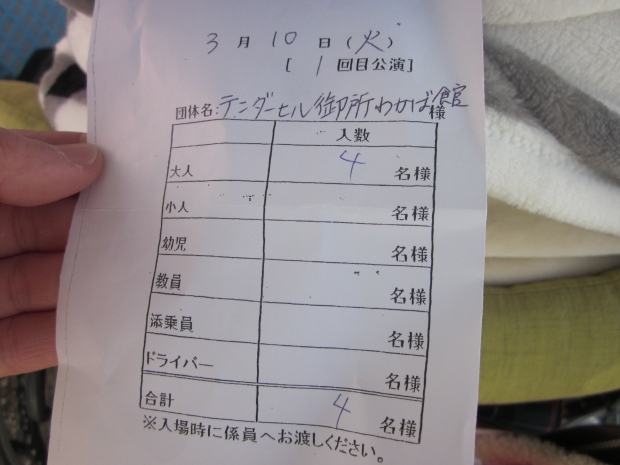 3月10日(火)
[1回目公演]
団体名:テンダーヒル御所わかば館様
人数
大人 4 名様
小人 名様
幼児 名様
教員 名様
添乗員 名様
ドライバー 名様
合計 4 名様
※入場時に係員へお渡しください。